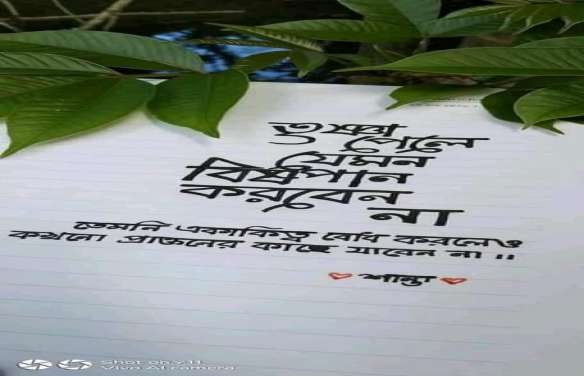 তৃষ্ণা
পেলে
যেমন
বিষপান
করবেন
না
তেমনি একাকিত্ব বোধ করলেও
কখনো প্রাক্তনের কাছে যাবেন না ।।
শান্তা
Shot on Y11
Vivo AI camera